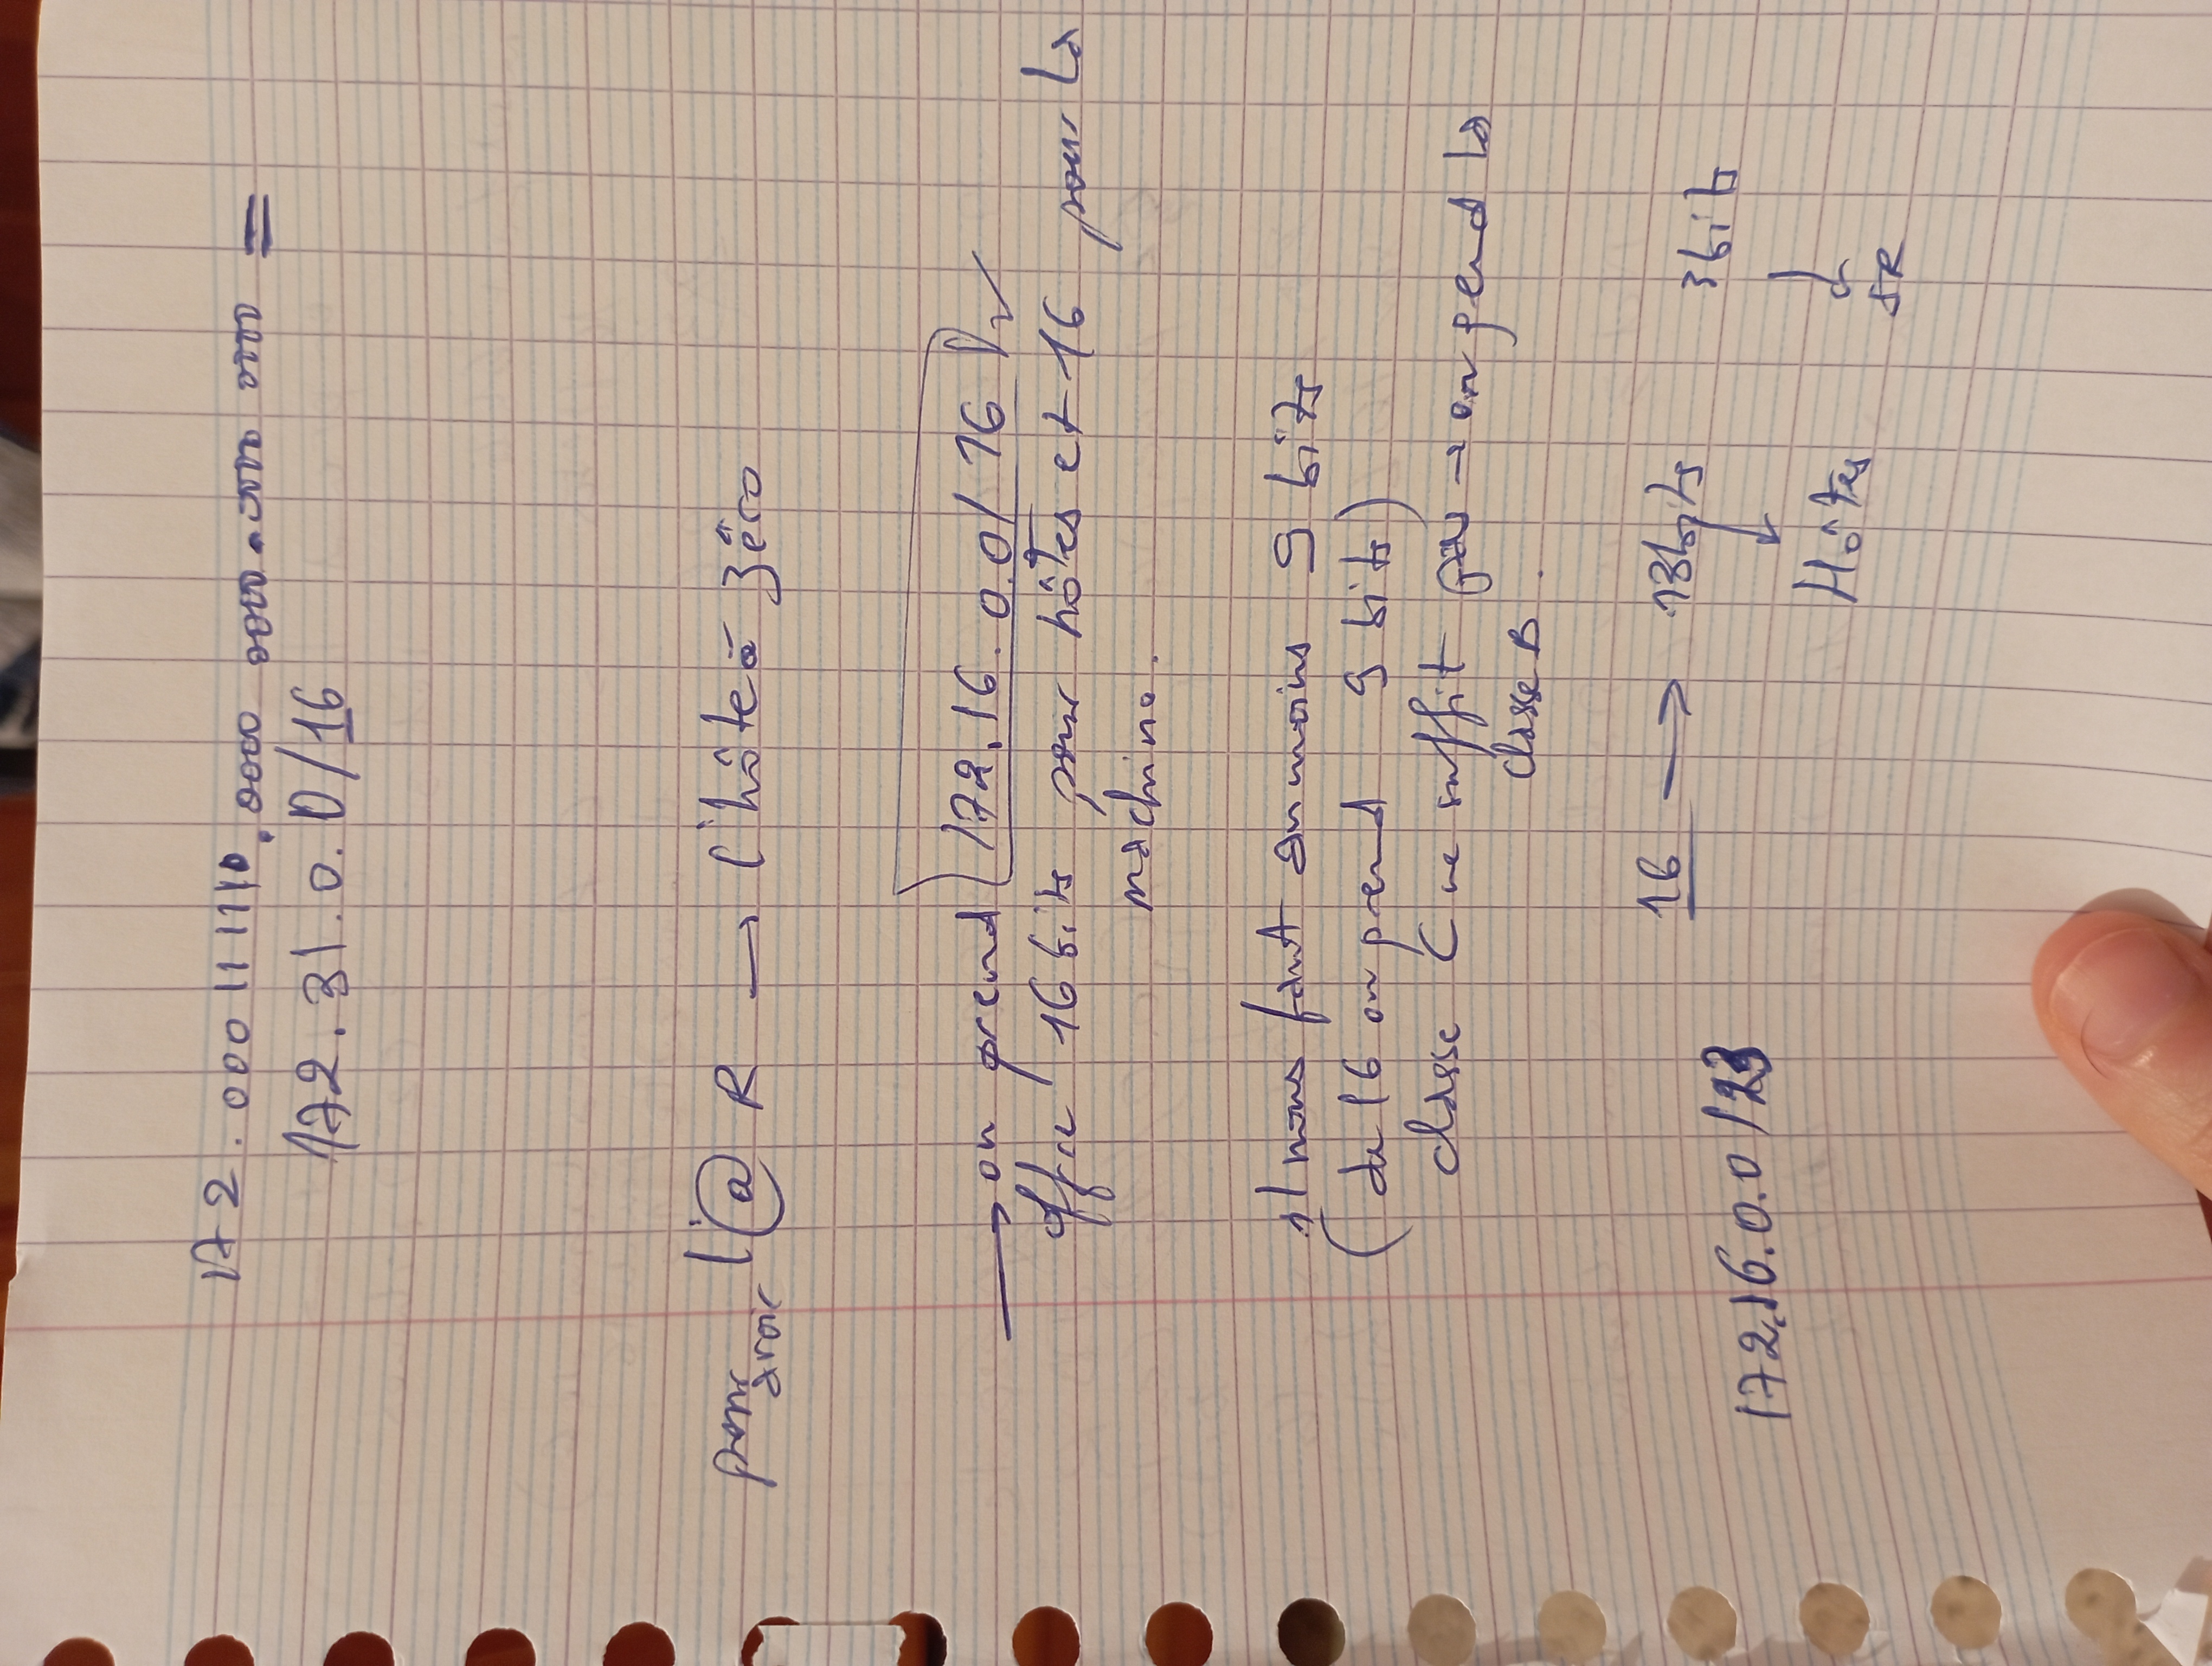 172.000111110.0000 0000.0000 0000 =
172.31.0.0/16
pour avoir l'@ R → l'hôte à zéro
→ on prend 172.16.0.0/16
offre 16 bits pour hôtes et 16 pour la
machine.
il nous faut au moins 9 bits
(de 16 on prend 9 bits)
classe C ne suffit pas → on prend la
classe B.
16 → 13bits 3bits
172.16.0.0/23
Hôtes SR